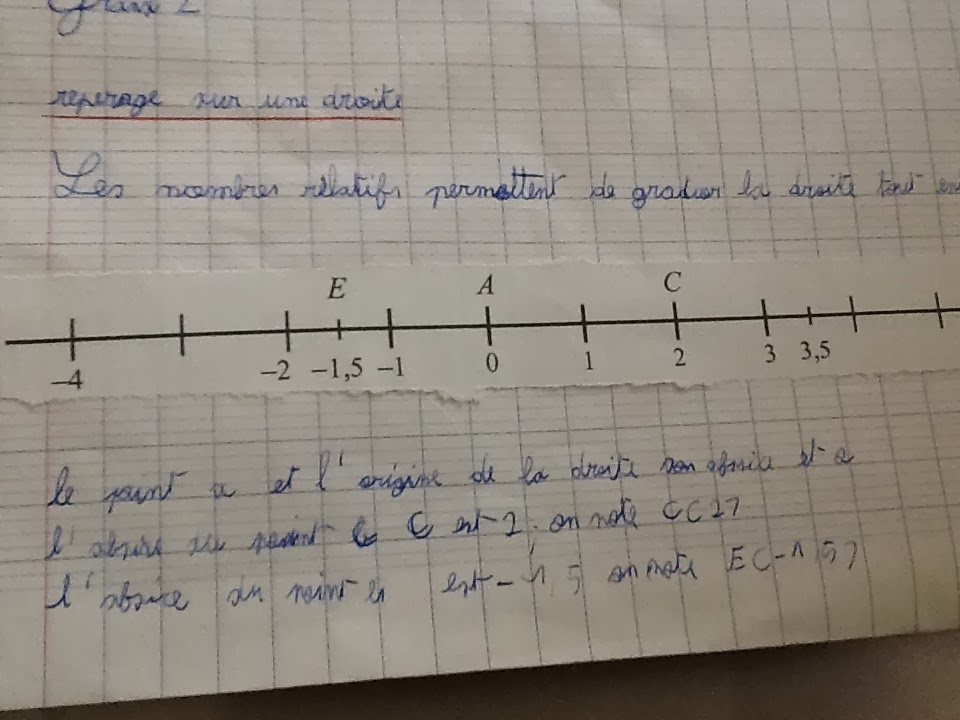 reperage sur une droite
Les nombres relatifs permettent de graduer la droite tout en
E A C
-4 -2 -1,5 -1 0 1 2 3 3,5
le point a et l'origine de la droite son absice et
l' du point C est 2. on note C(2)
l'absice du point est -1,5 on note E(-1,5)